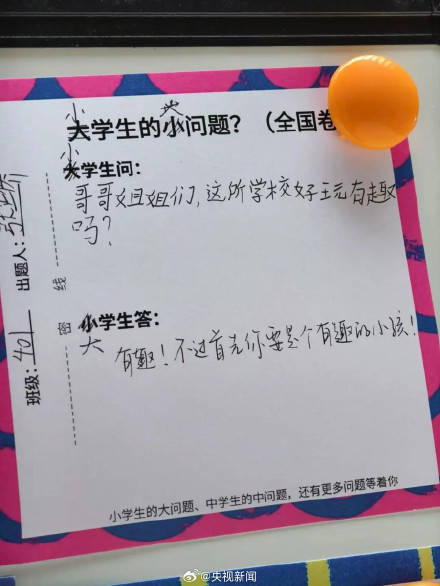 小 大
大学生的小问题？（全国卷
小
大学生问：
哥哥姐姐们,这所学校好玩有趣
吗?
小学生答：
大
有趣!不过首先你要是个有趣的小孩!
小学生的大问题、中学生的中问题，还有更多问题等着你
班级：401 出题人：
密 线
@央视新闻